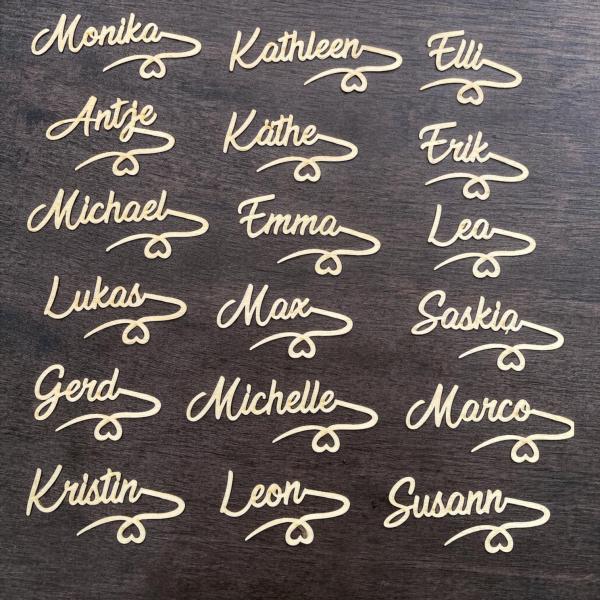 Monika Kathleen Elli
Antje Käthe Erik
Michael Emma Lea
Lukas Max Saskia
Gerd Michelle Marco
Kristin Leon Susann